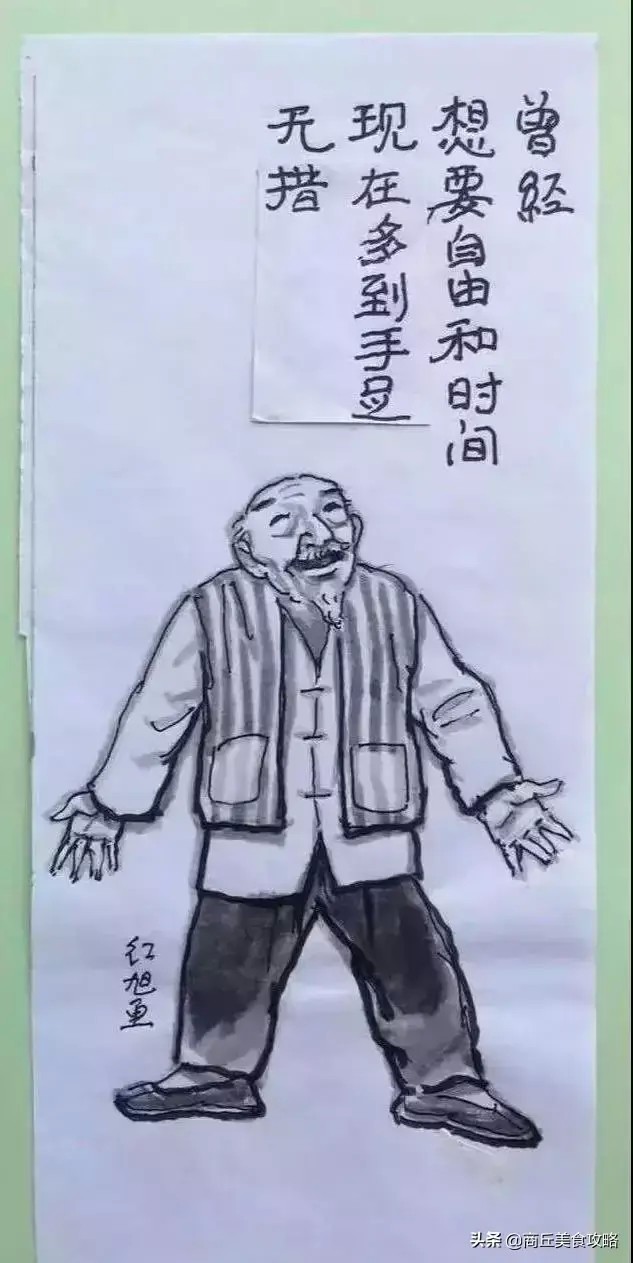 曾经
想要自由和时间
现在多到手足
无措
红旭画
头条 @商丘美食攻略